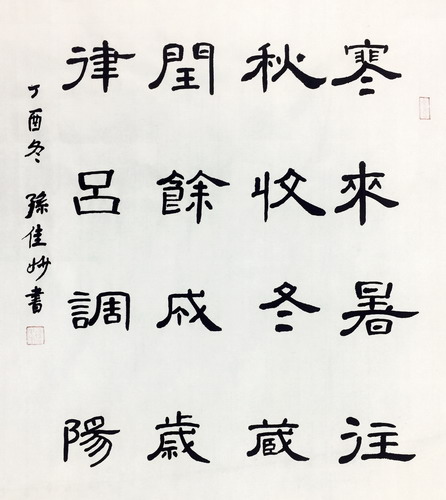 寒來暑往
秋收冬蔵
閏餘成歲
律呂調陽
丁酉冬 孫佳妙書